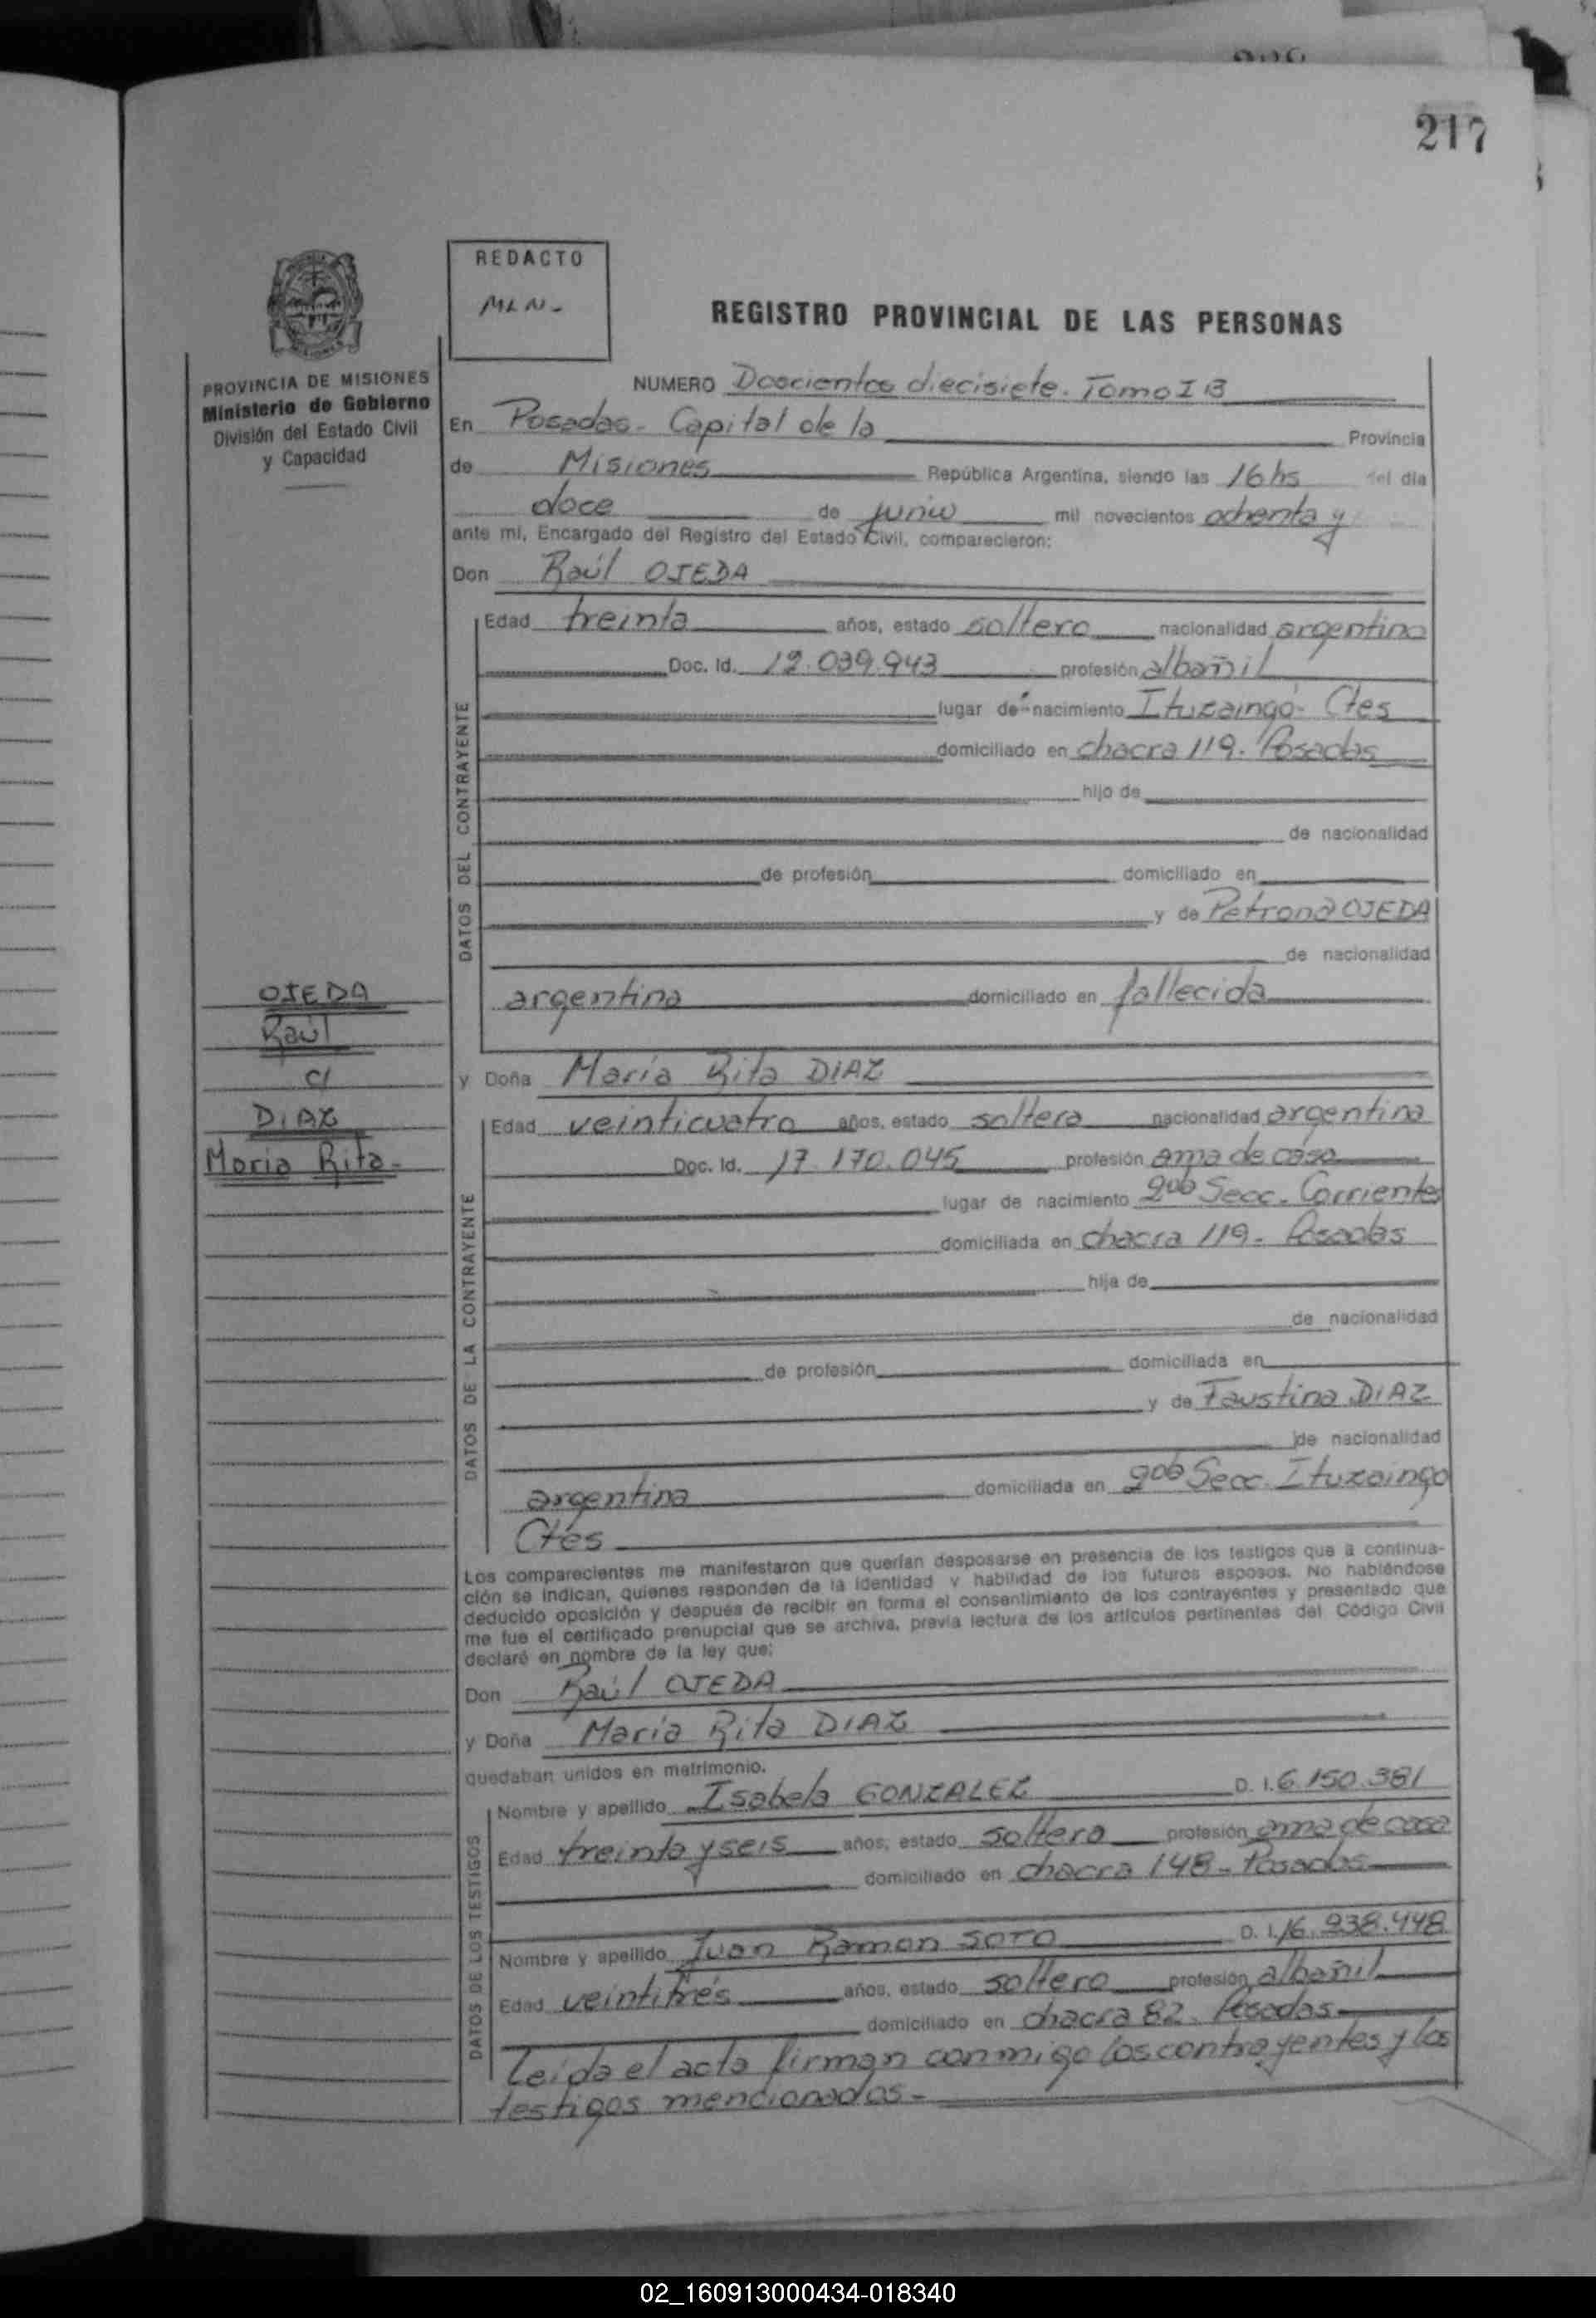 217
REDACTO
MLN-
REGISTRO PROVINCIAL DE LAS PERSONAS
PROVINCIA DE MISIONES
Ministerio de Gobierno
División del Estado Civil
y Capacidad
NUMERO Doscientos diecisiete. Tomo I B
En Posadas- Capital de la Provincia
de Misiones República Argentina, siendo las 16 hs del día
doce de junio mil novecientos ochenta y
ante mi, Encargado del Registro del Estado Civil, comparecieron:
Don Raúl OJEDA
DATOS DEL CONTRAYENTE
Edad treinta años, estado soltero nacionalidad argentina
Doc. Id. 12.039.943 profesión albañil
lugar de nacimiento Ituzaingó- Ctes
domiciliado en chacra 119. Posadas
hijo de
de nacionalidad
de profesión domiciliado en
y de Petrona OJEDA
de nacionalidad
argentina domiciliado en fallecida
OJEDA
Raúl
c/
DIAZ
Maria Rita-
y Doña María Rita DIAZ
DATOS DE LA CONTRAYENTE
Edad veinticuatro años, estado soltera nacionalidad argentina
Doc. Id. 17.170.045 profesión ama de casa
lugar de nacimiento 2da Secc. Corrientes
domiciliada en chacra 119- Posadas
hija de
de nacionalidad
de profesión domiciliada en
y de Faustina DIAZ
de nacionalidad
argentina domiciliada en 2da Secc. Ituzaingo
Ctes
Los comparecientes me manifestaron que querían desposarse en presencia de los testigos que a continua-
ción se indican, quienes responden de la identidad y habilidad de los futuros esposos. No habiéndose
deducido oposición y después de recibir en forma el consentimiento de los contrayentes y presentado que
me fue el certificado prenupcial que se archiva, previa lectura de los artículos pertinentes del Código Civil
declaré en nombre de la ley que:
Don Raúl OJEDA
y Doña María Rita DIAZ
quedaban unidos en matrimonio.
DATOS DE LOS TESTIGOS
Nombre y apellido Isabela GONZALEZ D. I. 6.150.381
Edad treinta y seis años, estado soltera profesión ama de casa
domiciliado en chacra 148- Posadas
Nombre y apellido Juan Ramon SOTO D. I. 16.938.448
Edad veintitrés años, estado soltero profesión albañil
domiciliado en chacra 82. Posadas
Leída el acta firman conmigo los contrayentes y los
testigos mencionados-
02_160913000434-018340